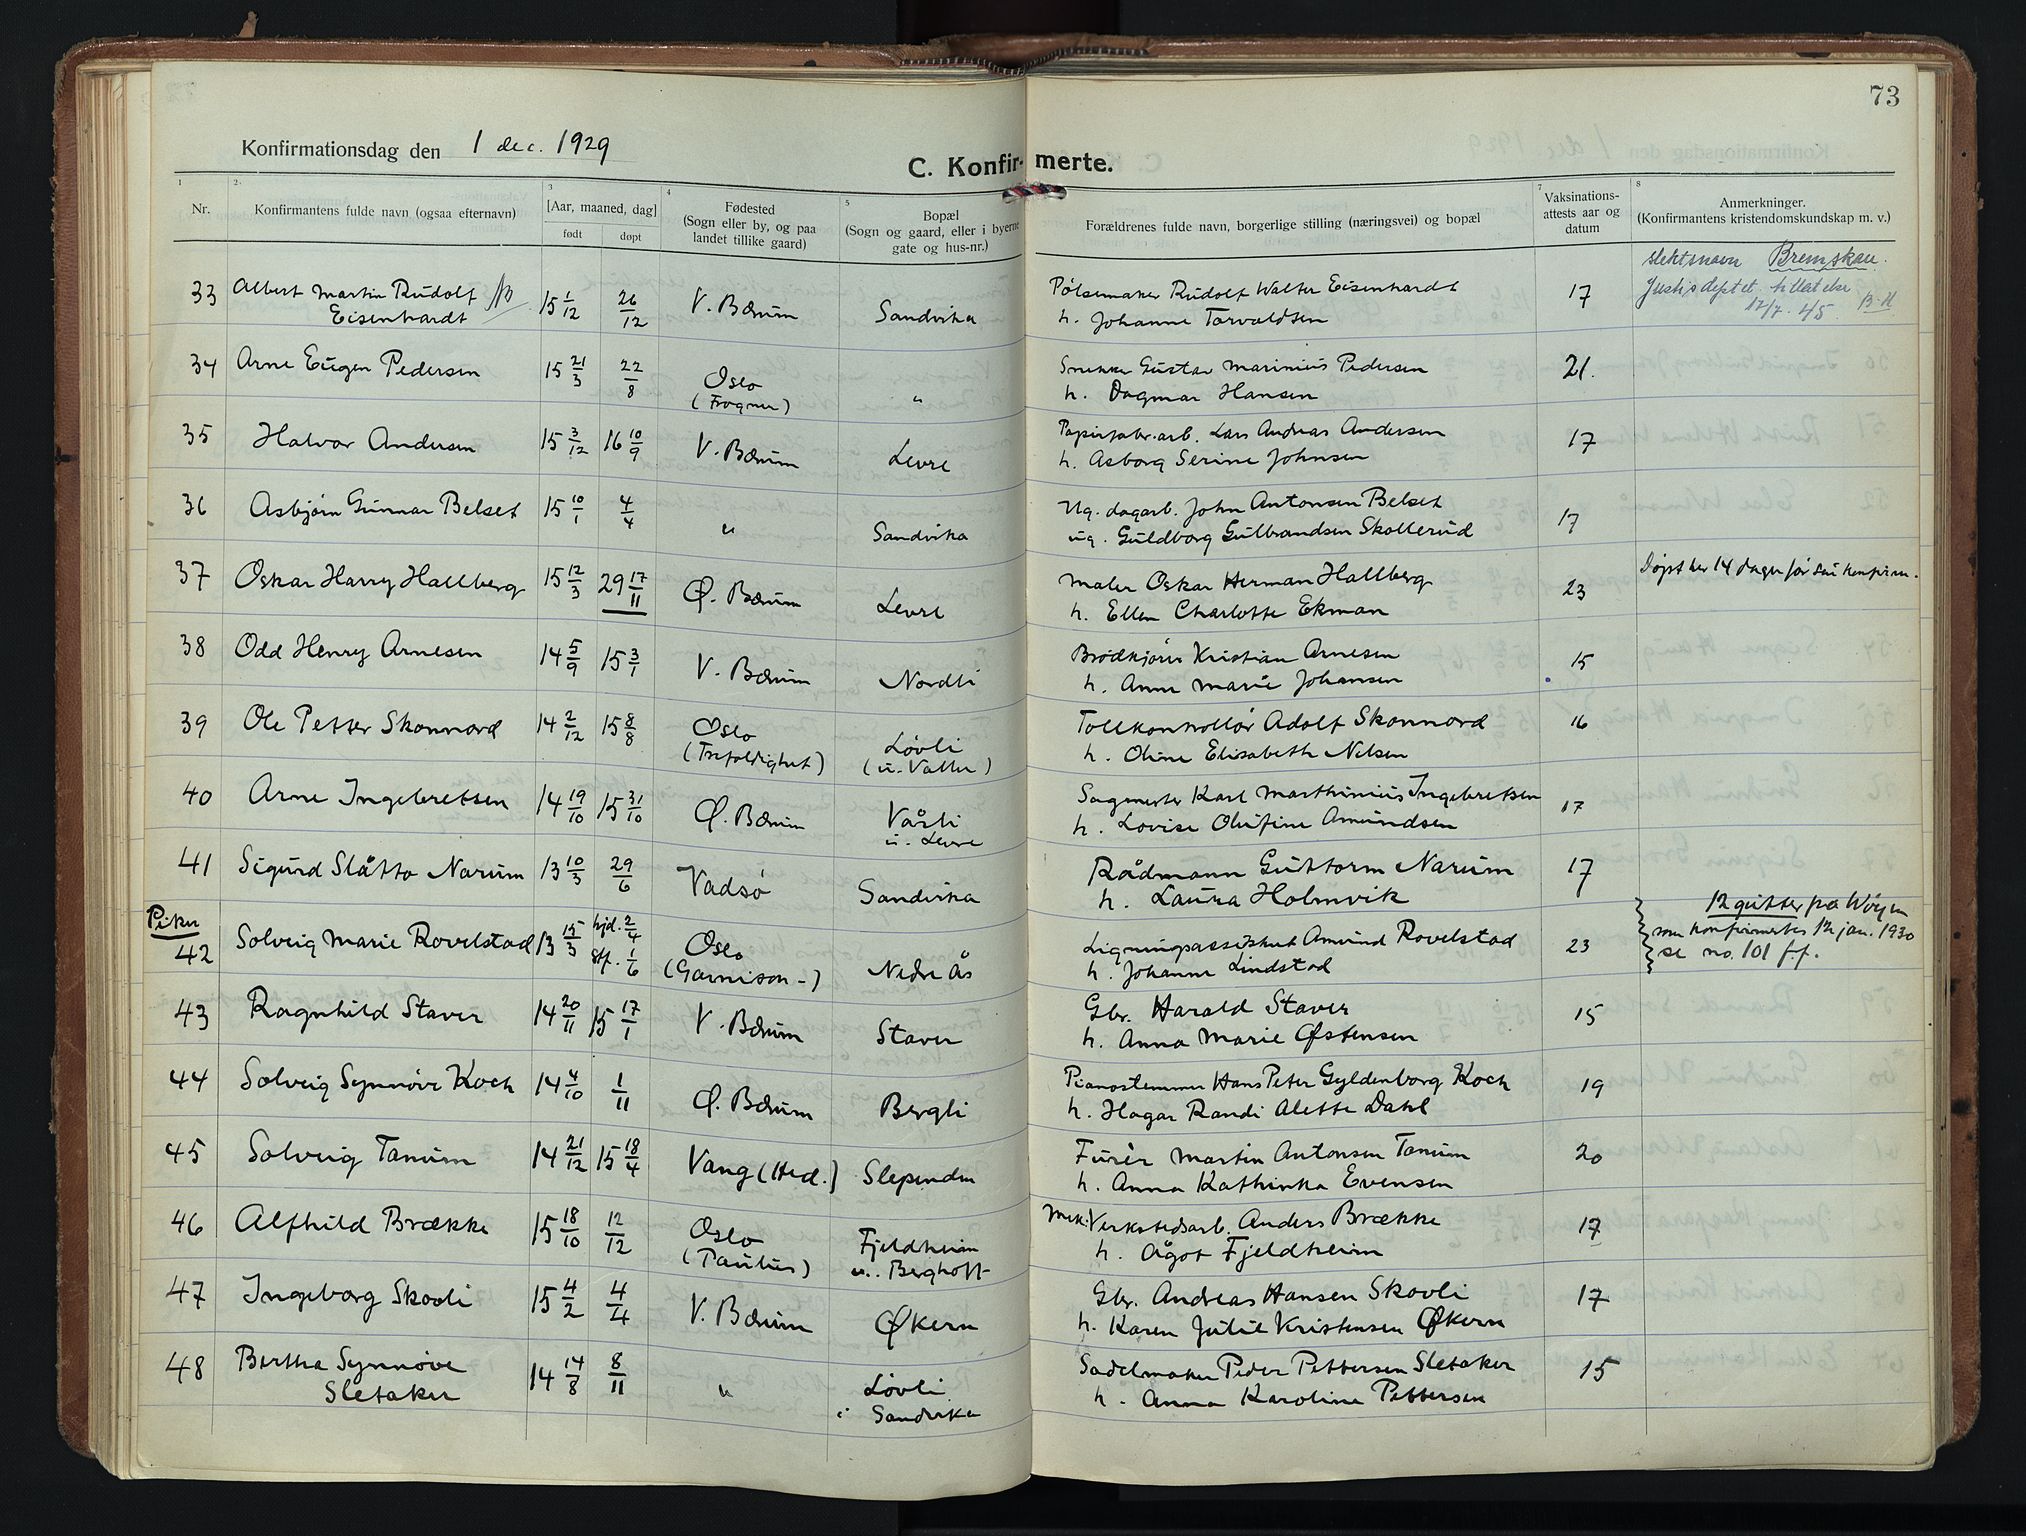 73
Konfirmationsdag den 1 dec. 1929
C. Konfirmerte.
1 2. 3 4 5 7 8
Nr. Konfirmantens fulde navn (ogsaa efternavn) [Aar, maaned, dag] født døpt Fødested (Sogn eller by, og paa landet tillike gaard) Bopæl (Sogn og gaard, eller i byerne gate og hus-nr.) Forældrenes fulde navn, borgerlige stilling (næringsvei) og bopæl Vaksinations-attests aar og datum Anmerkninger. (Konfirmantens kristendomskundskap m. v.)
slektsnavn Bremskau.
Justisdeptet. tillatelse
12/7. 45. B.H
33 Albert Martin Rudolf 15 1/12 26/12 V. Bærum Sandvika Pølsemaker Rudolf Walter Eisenhardt 17
Eisenhardt h. Johanne Torvaldsen
34 Arne Eugen Pedersen 15 21/3 22/8 Oslo " Snekker Gustav Marinius Pedersen 21.
(Frogner) h. Dagmar Hansen
35 Halvor Andersen 15 3/12 16 10/9 V. Bærum Levre Papirfabr.arb. Lars Andreas Andersen 17
h. Asborg Serine Johnsen
36 Asbjørn Gunnar Belset 15 10/1 4/4 " Sandvika Ug. dagarb. John Antonsen Belset 17
ug. Guldborg Gulbrandsen Skollerud
37 Oskar Harry Hallberg 15 12/3 29 17/11 Ø. Bærum Levre Maler Oskar Herman Hallberg 23 Døpt her 14 dager før sin konfirm.
h. Ellen Charlotte Ekman
38 Odd Henry Arnesen 14 5/9 15 3/1 V. Bærum Nordli Brødkjører Kristian Arnesen 15
h. Anne Marie Johansen
39 Ole Petter Skonnord 14 2/12 15 8/8 Oslo Løvli Tollkontrollør Adolf Skonnord 16
(Trefoldighet) (u. Valler) h. Oline Elisabeth Nilsen
40 Arne Ingebretsen 14 19/10 15 31/10 Ø. Bærum Vårli Sagmester Karl Marthinius Ingebretsen 17
u. Levre h. Lovise Olufine Amundsen
41 Sigurd Slåtto Narum 13 10/3 29/6 Vadsø Sandvika Rådmann Guttorm Narum 17
h. Laura Holmvik
Piker
42 Solveig Marie Rovelstad 13 15/3 hjd. 2/4 Oslo Nedre Ås Ligningsassistent Amund Rovelstad 23 12 gutter på Wøyen
stf. 1/6 (Garnison-) h. Johanne Lindstad som konfirmertes 12 jan. 1930
se no. 101 f.f.
43 Ragnhild Staver 14 20/11 15 17/1 V. Bærum Staver Gbr. Harald Staver 15
h. Anna Marie Østensen
44 Solveig Synnøve Koch 14 4/10 1/11 Ø. Bærum Bergli Pianostemmer Hans Peter Gyldenborg Koch 19
h. Hagar Randi Alette Dahl
45 Solveig Tanum 14 21/12 15 18/4 Vang (Hed.) Slependen Furér Martin Antonsen Tanum 20
h. Anna Kathinka Evensen
46 Alfhild Brække 15 18/10 12/12 Oslo Fjeldheim Mek. Verkstedsarb. Anders Brække 17
(Paulus) u. Berghoff h. Ågot Fjeldheim
47 Ingeborg Skovli 15 4/2 4/4 V. Bærum Økern Gbr. Andreas Hansen Skovli 17
h. Karen Julie Kristensen Økern
48 Bertha Synnøve 14 14/8 8/11 " Løvli Sadelmaker Peder Pettersen Sletaker 15
Sletaker i Sandvika h. Anna Karoline Pettersen